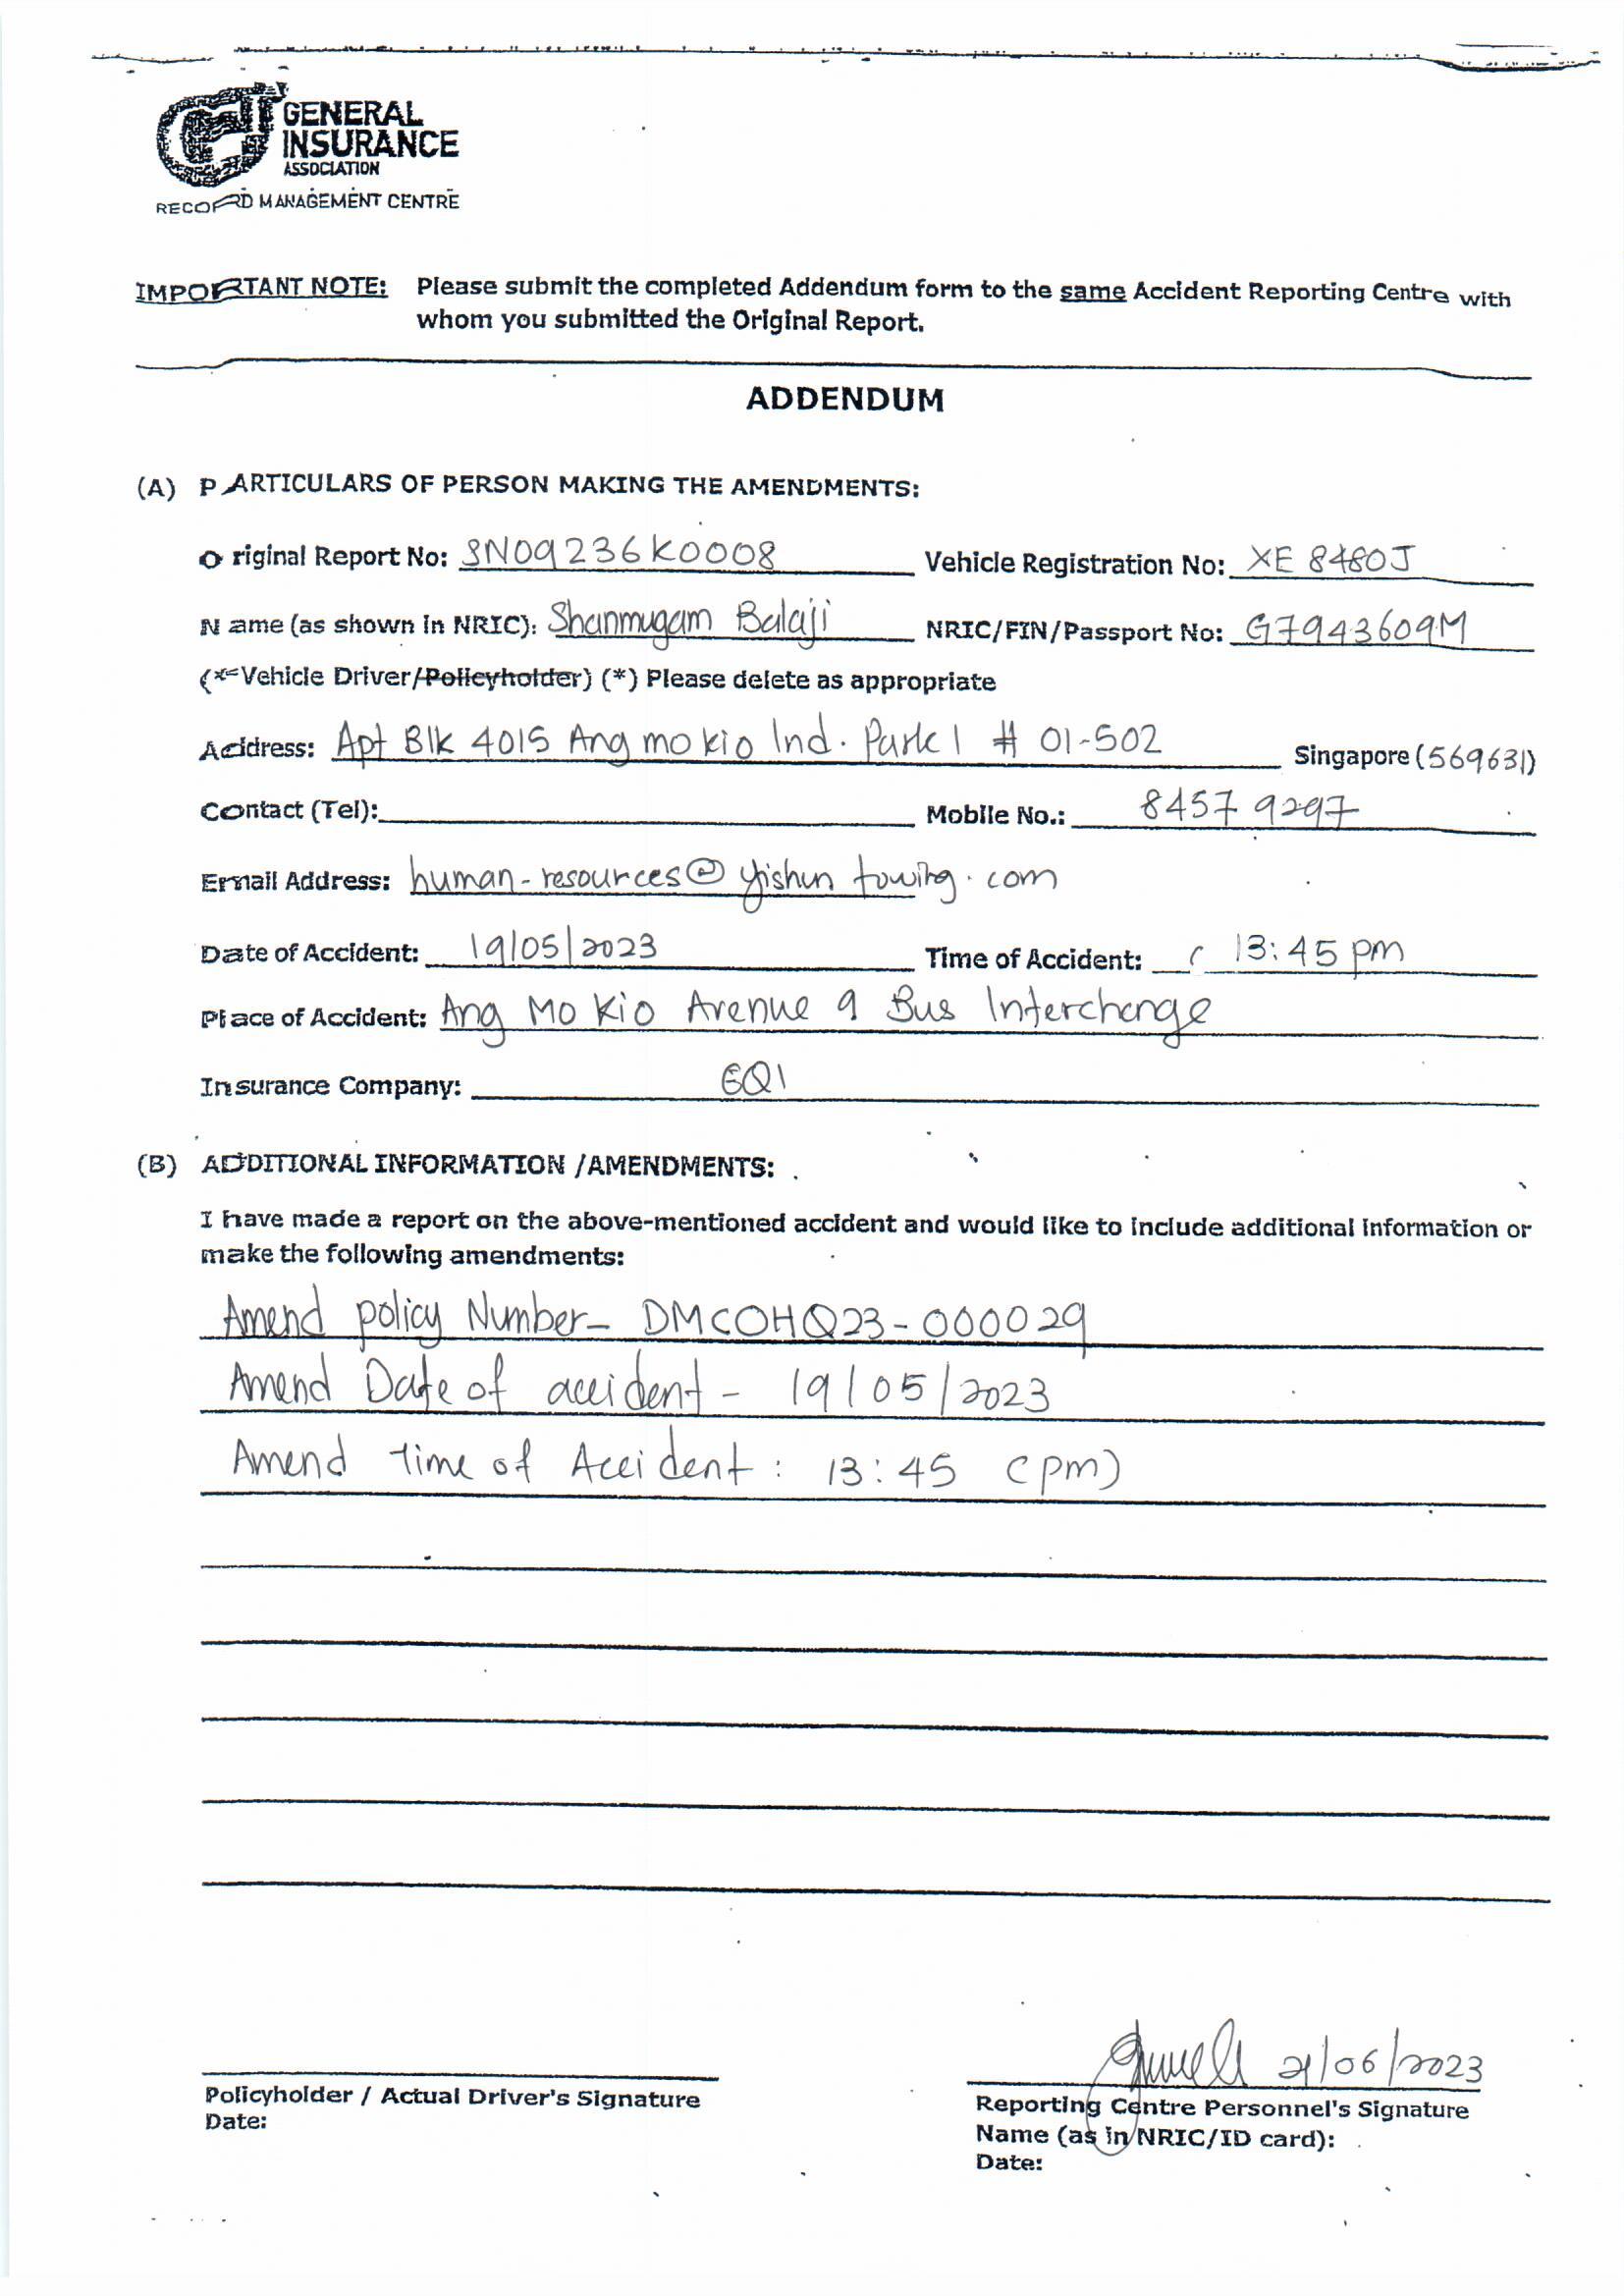 GENERAL
INSURANCE
ASSOCIATION
RECORD MANAGEMENT CENTRE
IMPORTANT NOTE: Please submit the completed Addendum form to the same Accident Reporting Centre with
whom you submitted the Original Report.
ADDENDUM
(A) PARTICULARS OF PERSON MAKING THE AMENDMENTS:
Original Report No: SN09236K0008 Vehicle Registration No: XE 8480J
Name (as shown in NRIC): Shanmugam Balaji NRIC/FIN/Passport No: G7943609M
(*Vehicle Driver/Policyholder) (*) Please delete as appropriate
Address: Apt Blk 4015 Ang mo kio Ind. Park 1 # 01-502 Singapore (569631)
Contact (Tel): Mobile No.: 8457 9297
Email Address: human-resources@yishuntowing.com
Date of Accident: 19/05/2023 Time of Accident: ( 13:45 pm
Place of Accident: Ang Mo Kio Avenue 9 Bus Interchange
Insurance Company: EQI
(B) ADDITIONAL INFORMATION /AMENDMENTS:
I have made a report on the above-mentioned accident and would like to include additional information or
make the following amendments:
Amend policy Number- DMCOHQ23-000029
Amend Date of accident - 19/05/2023
Amend time of Accident : 13:45 (pm)
21/06/2023
Policyholder / Actual Driver's Signature
Date:
Reporting Centre Personnel's Signature
Name (as in NRIC/ID card):
Date: